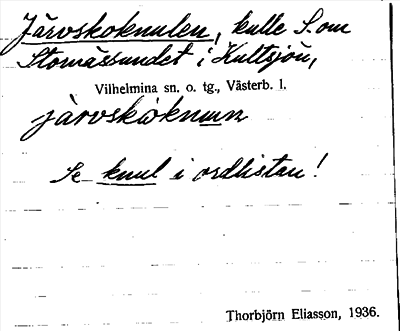 Järvskoknulen, kulle S. om
Stornässundet i Kultsjön,
Vilhelmina sn. o. tg., Västerb. l.
järvskoknuɯn
Se knul i ordlistan!
Thorbjörn Eliasson, 1936.